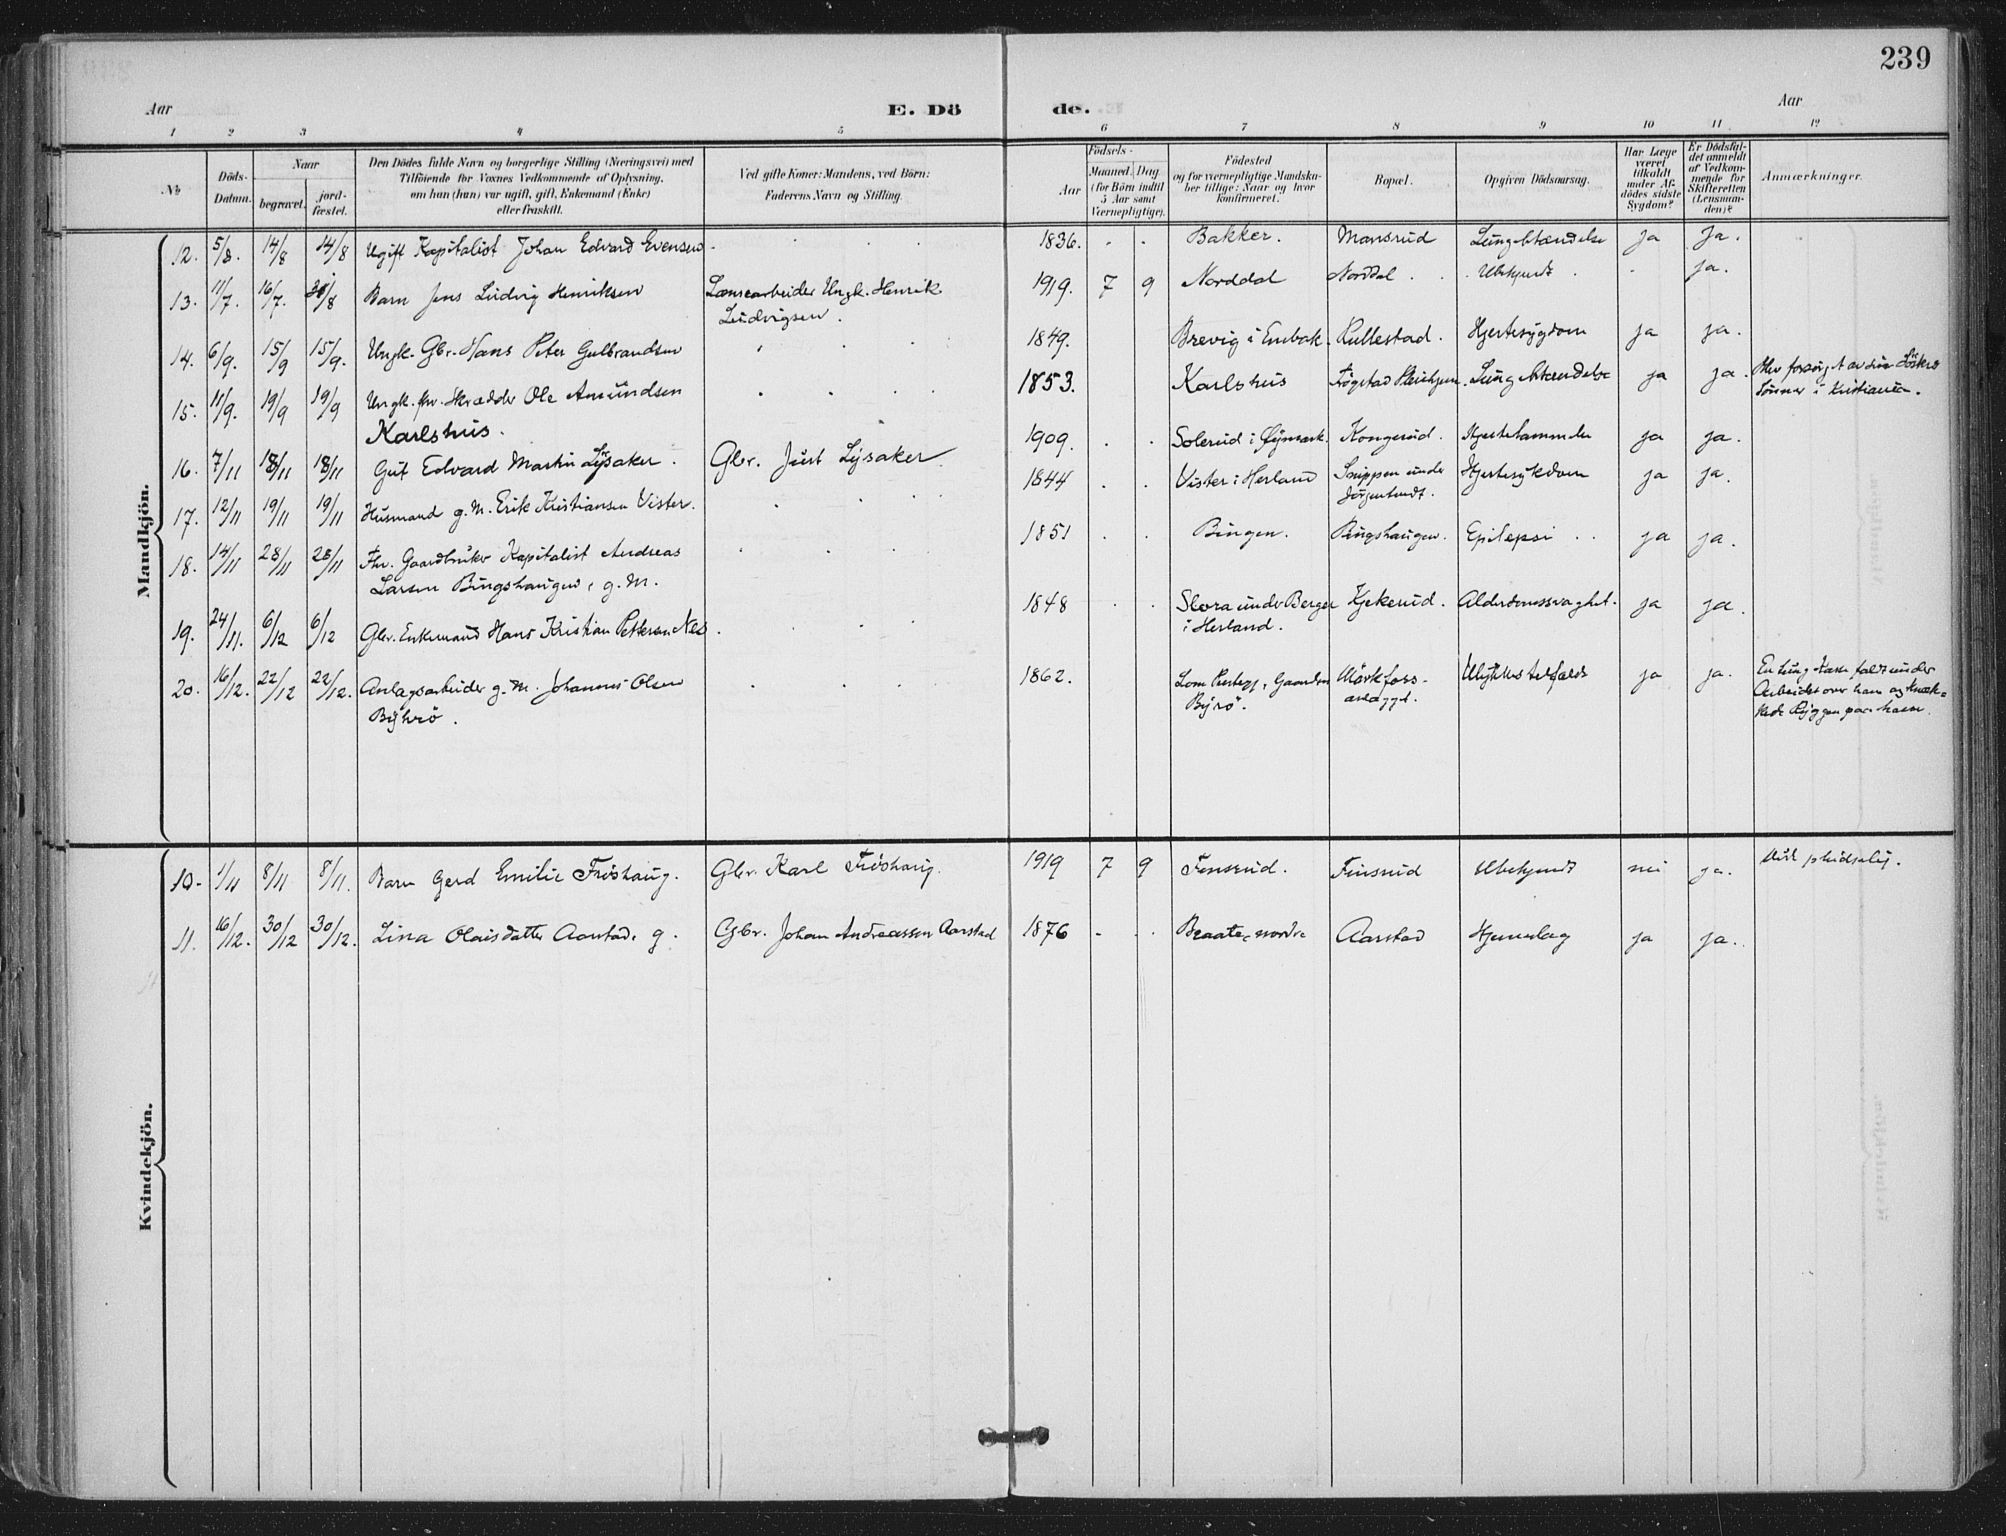 239
Aar E. Dö de. Aar
1 2 3 4 5 6 7 8 9 10 11 12
No
Döds-
Datum.
Naar
begravet.
jord-
fæstet.
Den Dödes fulde Navn og borgerlige Stilling (Næringsvei) med
Tilföiende for Voxnes Vedkommende af Oplysning,
om han (hun) var ugift, gift, Enkemand (Enke)
eller fraskilt.
Ved gifte Koner: Mandens, ved Börn:
Faderens Navn og Stilling.
Födsels-
Aar
Maaned. Dag
(for Börn indtil
5 Aar samt
Værnepligtige).
Födested
og for værnepligtige Mandska-
ber tillige: Naar og hvor
konfirmeret.
Bopæl.
Opgiven Dödsaarsag.
Har Læge
været
tilkaldt
under Af-
dödes sidste
Sygdom?
Er Dödsfal-
det anmeldt
af Vedkom-
mende for
Skifteretten
(Lensman-
den)?
Anmærkninger.
Mandkjön.
12. 5/8. 14/8 14/8 Ugift Kapitalist Johan Edvard Evensen 1836. Bakker. Mansrud Lungebtændelse ja Ja.
13. 11/7. 16/7. 31/8 Barn Jens Ludvig Henriksen Lænsearbeider Ungk. Henrik
Ludvigsen. 1919. 7 9 Norddal Norddal Ubekjendt ja.
14. 6/9. 15/9 15/9. Ungk. Gbr. Hans Peter Gulbrandsen 1849. Brevig i Enebak. Kullestad. Hjertesygdom ja ja.
15. 11/9. 19/9 19/9 Ungk. fhv. Skrædder Ole Amundsen
Karlshus. 1853. Karlshus Trøgstad Pleiehjem. Lungebtændelse ja ja. Blev forsørget av sine
Sønner i Kristiania.
16. 7/11 18/11 18/11 Gut Edvard Martin Lysaker. Gbr. Just Lysaker 1909. Solerud i Øymark. Kongerud. Hjertelammelse ja ja.
17. 12/11 19/11 19/11 Husmand g. M. Erik Kristiansen Vister. 1844 Vister i Herland Snippen under
Jörgentvedt. Hjertesykdom ja ja.
18. 14/11 28/11 28/11 Fhv. Gaardbruker Kapitalist Andreas
Larsen Bingshaugen, g. M. 1851 Bingen. Bingshaugen. Epilepsi ja ja.
19. 24/11. 6/12 6/12 Gbr. Enkemand Hans Kristian Pettersen Nes. 1848 Slora under Berger
i Herland. Kjekerud. Alderdomssvaghet. ja ja.
20. 16/12. 22/12 22/12. Anlægsarbeider g. M. Johannes Olsen
Byhrö. 1862. Lom Prestegj., Gaarden
Byrö. Mörkfoss-
anlægget. Ulykkestilfælde ja ja. En tung Kasse faldt under
Arbeidet over ham og knæk-
kede Ryggen paa ham.
Kvindekjön.
10. 1/11 8/11 8/11. Barn Gerd Emilie Fröshaug. Gbr. Karl Fröshaug. 1919 7 9 Finsrud. Finsrud Ubekjendt nei ja. Död pludselig.
11. 16/12. 30/12 30/12. Lina Olaisdatter Aarstad. g. Gbr. Johan Andreassen Aarstad 1876 Braate, nordre Aarstad Hjerneslag ja ja.